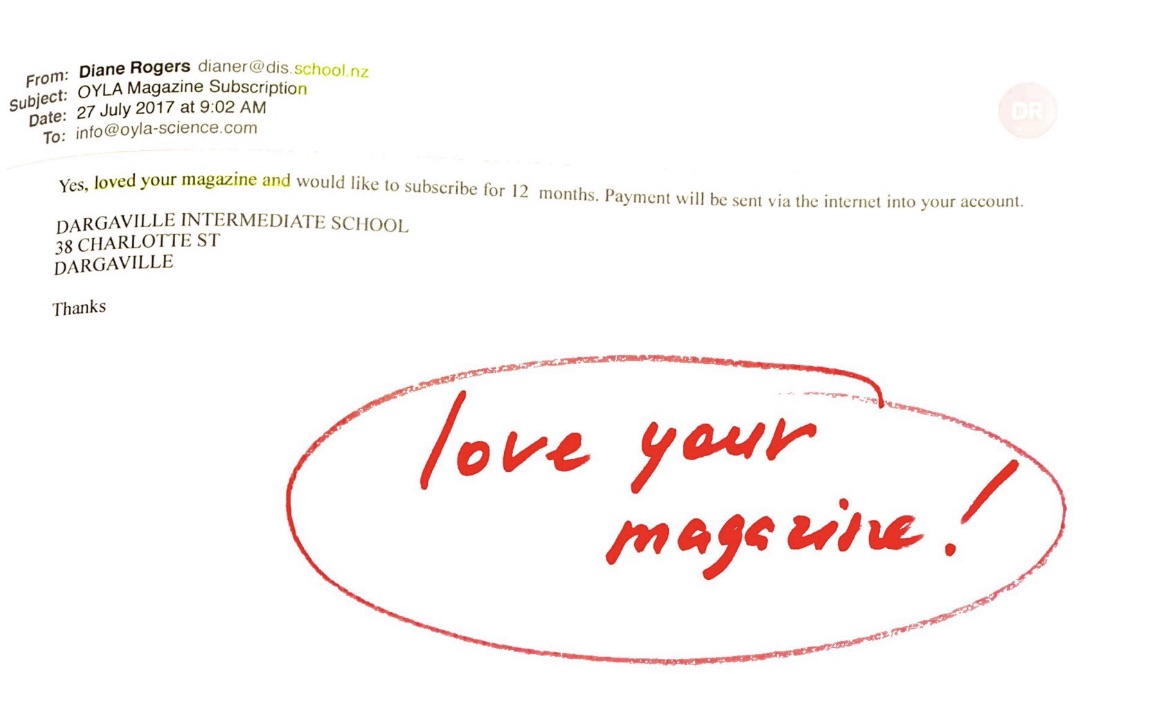 From: Diane Rogers dianer@dis.school.nz
Subject: OYLA Magazine Subscription
Date: 27 July 2017 at 9:02 AM
To: info@oyla-science.com
DR
Yes, loved your magazine and would like to subscribe for 12 months. Payment will be sent via the internet into your account.
DARGAVILLE INTERMEDIATE SCHOOL
38 CHARLOTTE ST
DARGAVILLE
Thanks
love your
magazine!